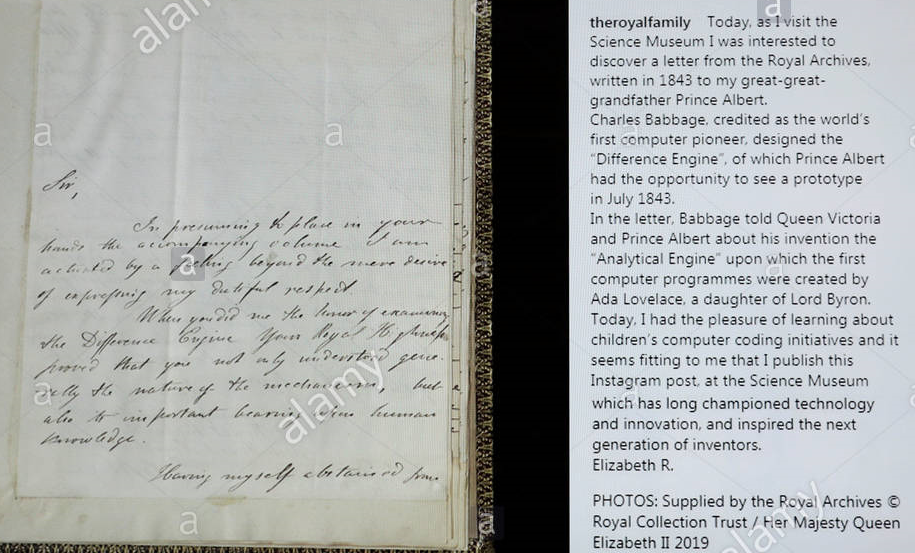 Sir,
In presuming to place in your
hands the accompanying volume I am
actuated by a feeling beyond the mere desire
of expressing my dutiful respect
When you did me the honor of examining
the Difference Engine Your Royal Highness
proved that you not only understood gene-
rally the nature of the mechanism, but
also its important bearing upon human
knowledge.
Having myself abstained from
theroyalfamily Today, as I visit the
Science Museum I was interested to
discover a letter from the Royal Archives,
written in 1843 to my great-great-
grandfather Prince Albert.
Charles Babbage, credited as the world's
first computer pioneer, designed the
"Difference Engine", of which Prince Albert
had the opportunity to see a prototype
in July 1843.
In the letter, Babbage told Queen Victoria
and Prince Albert about his invention the
"Analytical Engine" upon which the first
computer programmes were created by
Ada Lovelace, a daughter of Lord Byron.
Today, I had the pleasure of learning about
children's computer coding initiatives and it
seems fitting to me that I publish this
Instagram post, at the Science Museum
which has long championed technology
and innovation, and inspired the next
generation of inventors.
Elizabeth R.
PHOTOS: Supplied by the Royal Archives ©
Royal Collection Trust / Her Majesty Queen
Elizabeth II 2019
alamy
alamy
alamy
a
a
a
a
a
a